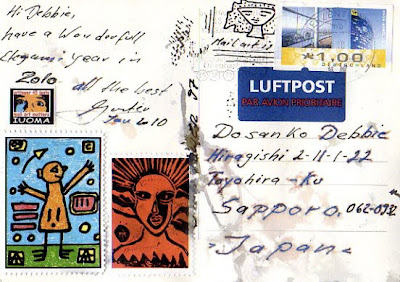 Hi Debbie,
have a Wonderfull
Etegami year in
2010
all the best
Jan 2010
TUOMA
Mail art is
*1,00
DEUTSCHLAND
LUFTPOST
PAR AVION PRIORITAIRE
Dosanko Debbie
Hiragishi 2-11-1-22
Toyohira-Ku
Sapporo, 062-0932
Japan